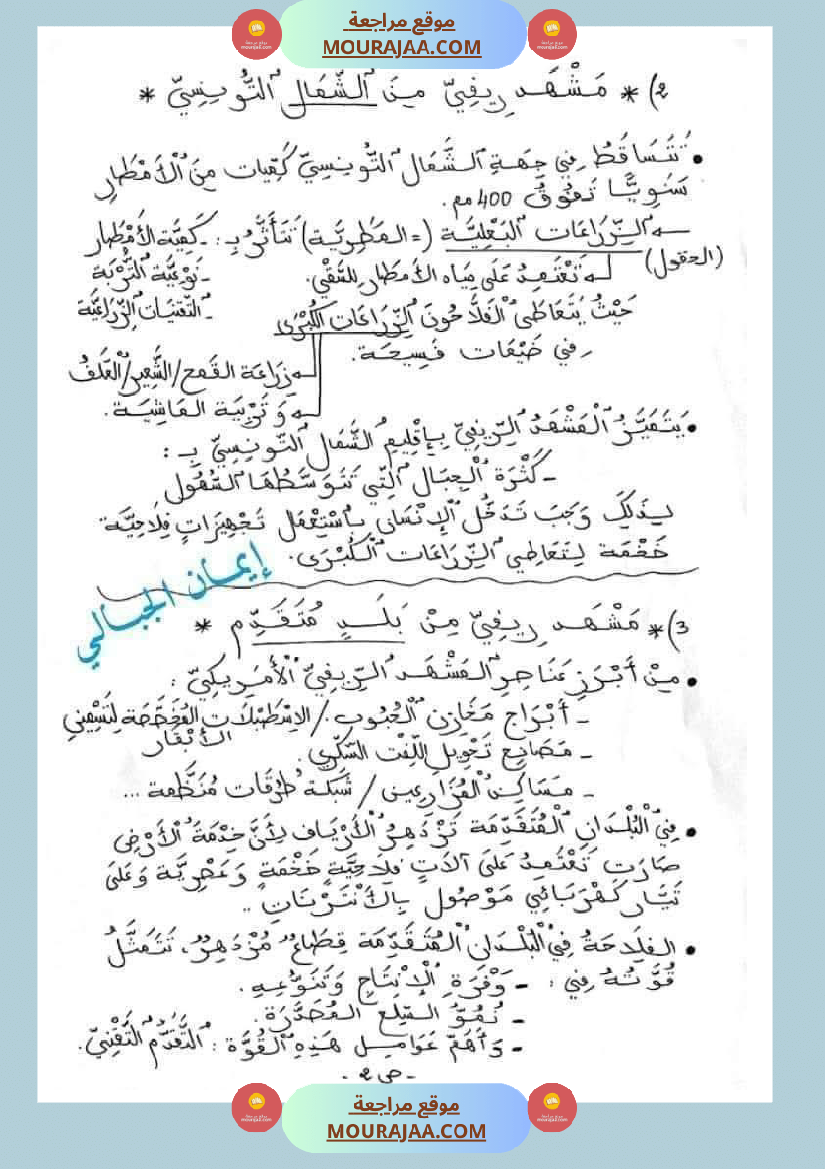 موقع مراجعة
MOURAJAA.COM
2) * مَشْهَد رِيفِيّ مِنَ الشَّمَال التُّونِسِيّ *
• تَتَسَاقَطُ فِي جِهَةِ الشَّمَال التُّونِسِيّ كَمِّيات مِنَ الْأَمْطَارِ
سَنَوِيًّا تَفُوقُ 400 مم.
الزِّرَاعَات البَعْلِيَّة (= المَطَرِيَّة) تَتَأَثَّرُ بِـ: - كَمِيَّة الأَمْطَار
(الحقول) تَعْتَمِدُ عَلَى مِيَاه الأمطَار لِلسَّقْيِ. - نَوْعِيَّة التُّرْبَة
- التّقنيَات الزِّرَاعِيَّة
حَيْثُ يَتَعَاطَى الْفَلاَّحُونَ الزِّرَاعَات الكُبْرَى
فِي ضَيْعَات فَسِيحَة.
زِرَاعَة القَمح/الشَّعِير/الْعَلَفُ
وَ تَرْبِيَة المَاشِيَة.
• يَتَمَيَّزُ الْمَشْهَدُ الرِّيفِيّ بِإِقْلِيمِ الشَّمَال التُّونِسِيّ بِـ :
- كَثْرَة الْجِبَال الّتِي تَتَوَسَّطُهَا السُّهُول
لِذَلِكَ وَجَبَ تَدَخُّل الْإِنْسَانِ بِاسْتِعْمَل تَجْهِيزَاتٍ فِلَاحِيَّة
ضَخْمَة لِتَعَاطِي الزِّرَاعَات الْكُبْرَى.
إيمان الجبالي
3) * مَشْهَد رِيفِيّ مِنْ بَلَدٍ مُتَقَدِّم *
• مِنْ أَبْرَزِ عَنَاصِرِ المَشْهَد الرِّيفِيّ الْأَمْرِيكِيّ :
- أَبْرَاج مَخَازِن الْحُبُوب / الإسْطَبْلَات المُخَصَّصَة لِتَسْمِينِ
الأَبْقَار
- مَصَانِع تَحْوِيل اللِّفْت السّكَّرِي.
- مَسَاكِن الْمُزَارِعِين / شَبَكَة طُرُقَات مُنَظَّمة ...
• فِي الْبُلْدَانِ الْمُتَقَدِّمَة تَزْدَهِرُ الْأَرْيَاف لِأَنَّ خِدْمَةَ الْأَرْضِ
صَارَت تَعْتَمِدُ عَلَى آلَاتٍ فِلَاحِيَّةٍ ضَخْمَةٍ وَعَصْرِيَّة وَعَلَى
تَيَّار كَهْرَبَائِي مَوْصُول بِالْأَنْتَرْنَاتِ ..
• الفِلَاحَةُ فِي الْبُلْدَان الْمُتَقَدِّمَة قِطَاعٌ مُزْدَهِرٌ، تَتَمَثَّلُ
قُوَّتُهُ فِي : - وَفْرَةِ الْإِنْتَاج وَتَنَوُّعِهِ.
- نُمُوّ السِّلَع المُصَدَّرَة.
- وَأَهَمّ عَوَامِل هَذِهِ الْقُوَّة : التَّقَدُّمُ التِّقْنِيّ.
- ص 2 -
موقع مراجعة
MOURAJAA.COM